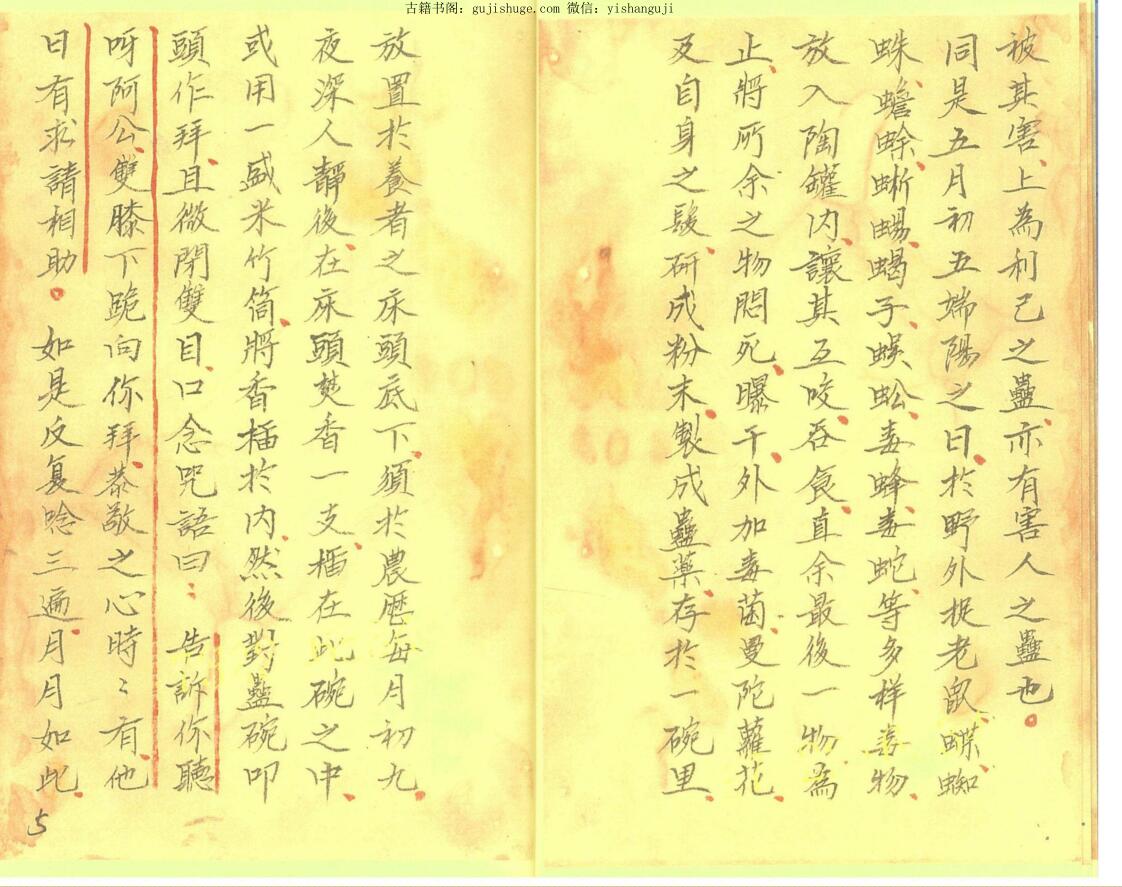 古籍书阁：gujishuge.com 微信：yishanguji
被其害、上為利己之蠱、亦有害人之蠱也。
同是五月初五端陽之日、於野外捉老鼠、蝶、蜘
蛛、蟾蜍、蜥蜴、蝎子、蜈蚣、毒蜂、毒蛇、等多样毒物、
放入陶罐内、讓其互咬、吞食、直余最後一物、為
止、將所余之物悶死、曝干、外加毒菌、曼陀蘿花、
及自身之髮、研成粉末、製成蠱藥、存於一碗里、
放置於養者之床頭底下、須於農歷每月初九、
夜深人靜後、在床頭焚香一支、插在此碗之中、
或用一盛米竹筒、將香插於内、然後對蠱碗叩
頭作拜、且微閉雙目、口念咒語曰：告訴你聽
呀阿公、雙膝下跪向你拜、恭敬之心時〻有、他
日有求請相助。如是反复唸三遍、月月如此、
5